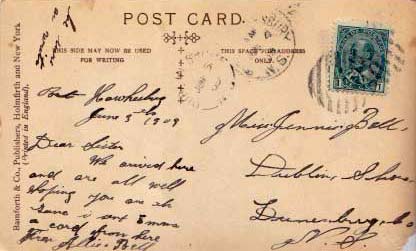 POST CARD.
THIS SIDE MAY NOW BE USED
FOR WRITING
THIS SPACE FOR ADDRESS
ONLY.
Bamforth & Co., Publishers, Holmfirth and New York
(Printed in England).
Port Hawkesbury
June 5th 1909
Dear Sister
We arived here
and are all well
hoping you are the
same i sent Emma
a card from here
from Allie Bell
Miss Jennie Bell
Dublin Shore
Lunenburg Co
N. S.